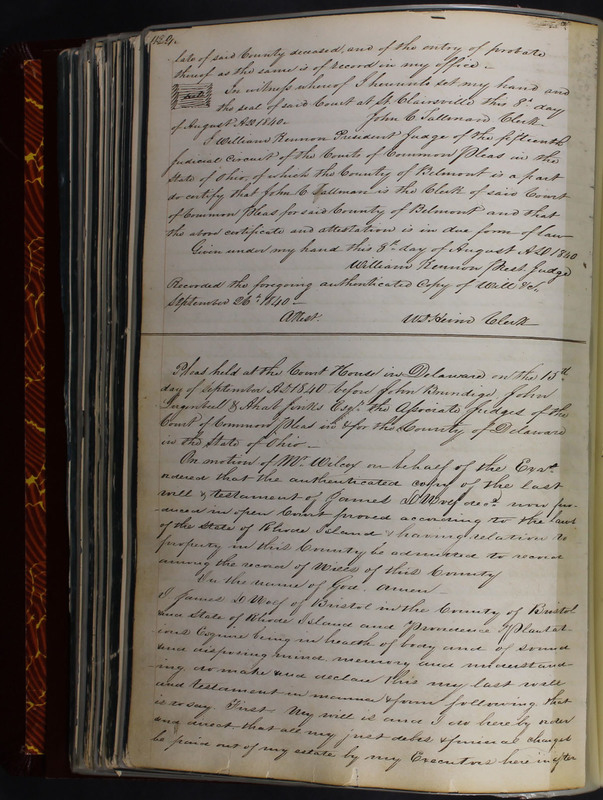 late of said County deceased, and of the entry of probate
thereof as the same is of record in my office –
In witness whereof I hereunto set my hand and
seal
the seal of said Court at St. Clairsville this 8th day
of August AD 1840. John C Tallman Clerk
I William Kennon President Judge of the fifteenth
Judicial Circuit of the Courts of Common Pleas in the
State of Ohio, of which the County of Belmont is a part
do certify that John C Tallman is the Clerk of said Court
of Common Pleas for said County of Belmont and that
the above certificate and attestation is in due form of law
Given under my hand this 8th day of August AD 1840
William Kennon Prest Judge
Recorded the foregoing authenticated Copy of Will &c.
September 26th 1840 –
Attest. Clerk
Pleas held at the Court House in Delaware on the 15th
day of September AD 1840 before John Boundige, John
Lugenbeel & Ahab Jinks Esqrs the Associate Judges of the
Court of Common Pleas in & for the County of Delaware
in the State of Ohio –
On motion of Mr Wilcox on behalf of the Exrs
ordered that the authenticated copy of the last
will & testament of James D'Wolf decd now pro-
duced in open Court proved according to the laws
of the State of Rhode Island & having relation to
property in this County be admitted to record
among the record of Wills of this County
In the name of God. Amen –
I James D'Wolf of Bristol in the County of Bristol
and State of Rhode Island and Providence Plantat-
ions Esquire being in health of body and of sound
and disposing mind, memory and understand-
ing do make and declare this my last will
and testament in manner & form following that
is to say. First. My will is and I do hereby order
and direct that all my just debts & funeral charges
be paid out of my estate by my Executors herein after